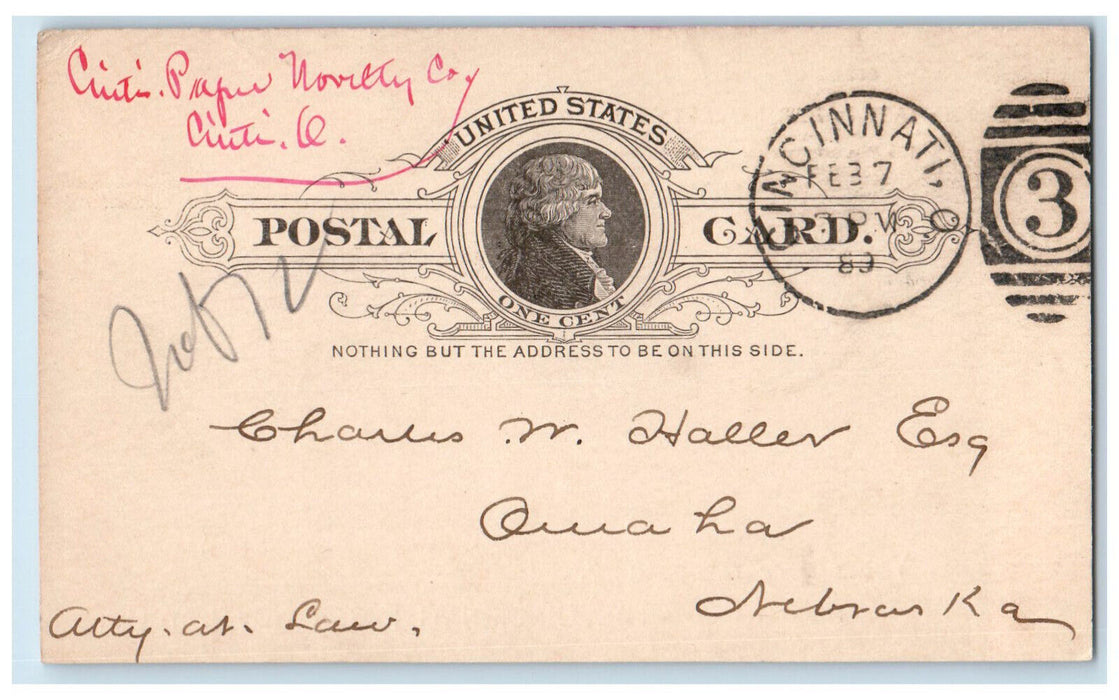 Cinti. Paper Novelty Co,
Cinti. O.
UNITED STATES
POSTAL CARD.
ONE CENT
NOTHING BUT THE ADDRESS TO BE ON THIS SIDE.
CINCINNATI, O
FEB 7
PM
89
3
Charles W. Haller Esq
Omaha
Nebraska
Atty. at. Law.